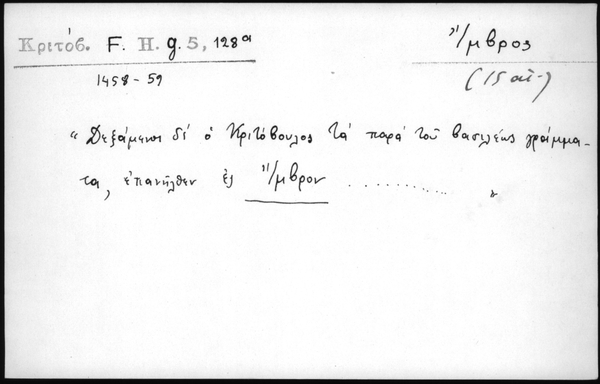 Κριτόβ. F. H. g. 5, 128α
Ἴμβρος
1458-59
(15 αἰ-)
“ Δεξάμενος δέ ὁ Κριτόβουλος τά παρά τοῦ βασιλέως γράμμα-
τα, ἐπανῆλθεν ἐς Ἴμβρον .......... „